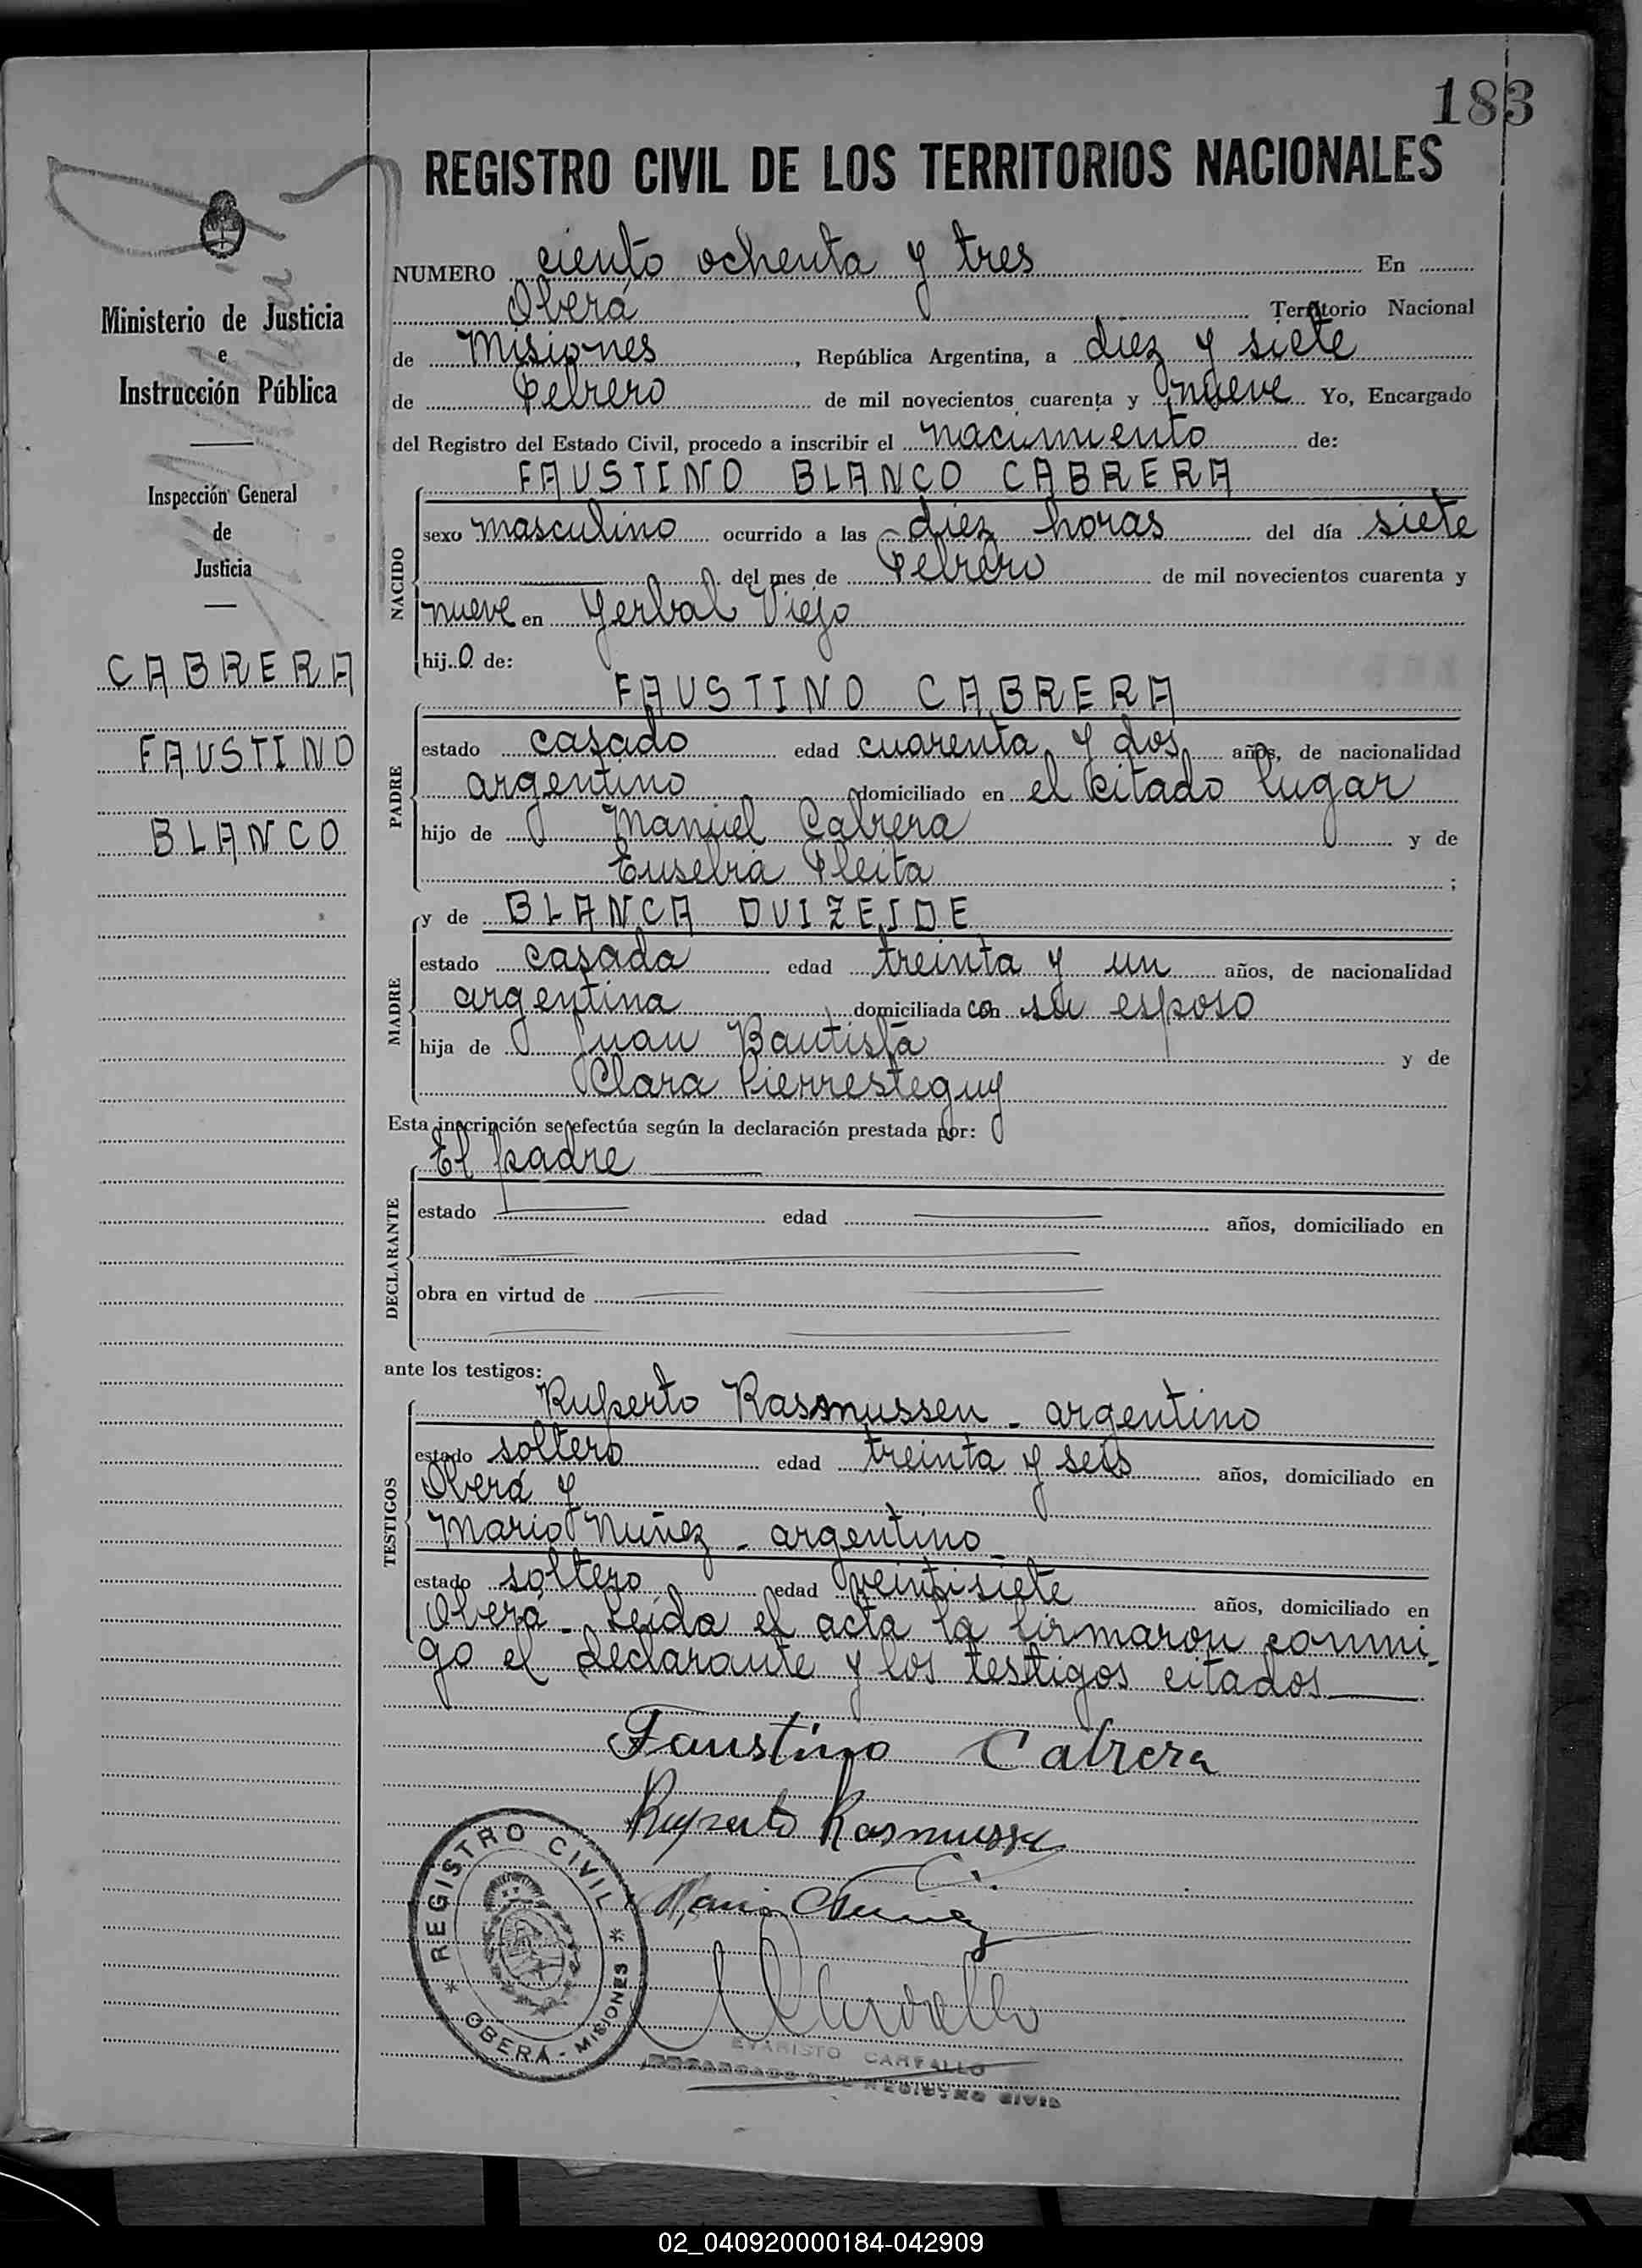 183
REGISTRO CIVIL DE LOS TERRITORIOS NACIONALES
Ministerio de Justicia
e
Instrucción Pública
Inspección General
de
Justicia
CABRERA
FAUSTINO
BLANCO
NUMERO ciento ochenta y tres En
Oberá Territorio Nacional
de Misiones, República Argentina, a diez y siete
de Febrero de mil novecientos cuarenta y nueve Yo, Encargado
del Registro del Estado Civil, procedo a inscribir el nacimiento de:
NACIDO
FAUSTINO BLANCO CABRERA
sexo masculino ocurrido a las diez horas del día siete
del mes de Febrero de mil novecientos cuarenta y
nueve en Yerbal Viejo
hijo de:
PADRE
FAUSTINO CABRERA
estado casado edad cuarenta y dos años, de nacionalidad
argentino domiciliado en el citado lugar
hijo de Manuel Cabrera y de
Eusebia Fleita ;
MADRE
y de BLANCA DUIZEIDE
estado casada edad treinta y un años, de nacionalidad
argentina domiciliada con su esposo
hija de Juan Bautista y de
Clara Pierresteguy
Esta inscripción se efectúa según la declaración prestada por:
DECLARANTE
El padre
estado edad años, domiciliado en
obra en virtud de
ante los testigos:
TESTIGOS
Ruperto Rasmussen - argentino
estado soltero edad treinta y seis años, domiciliado en
Oberá y
Mario Nuñez - argentino -
estado soltero edad veintisiete años, domiciliado en
Oberá - Leída el acta la firmaron conmi-
go el declarante y los testigos citados
Faustino Cabrera
Ruperto Rasmussen
Mario Nuñez
REGISTRO CIVIL
* OBERÁ - MISIONES *
EVARISTO CARVALLO
ENCARGADO DEL REGISTRO CIVIL
02_040920000184-042909